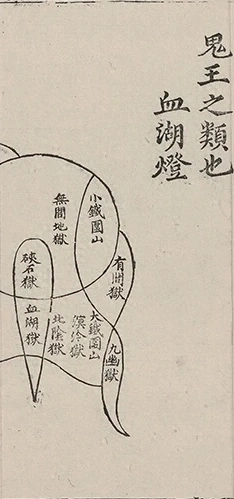 鬼王之類也
血湖燈
小鐵圍山
無間地獄
有間獄
硤石獄
血湖獄
大鐵圍山
溟泠獄
北陰獄
九幽獄